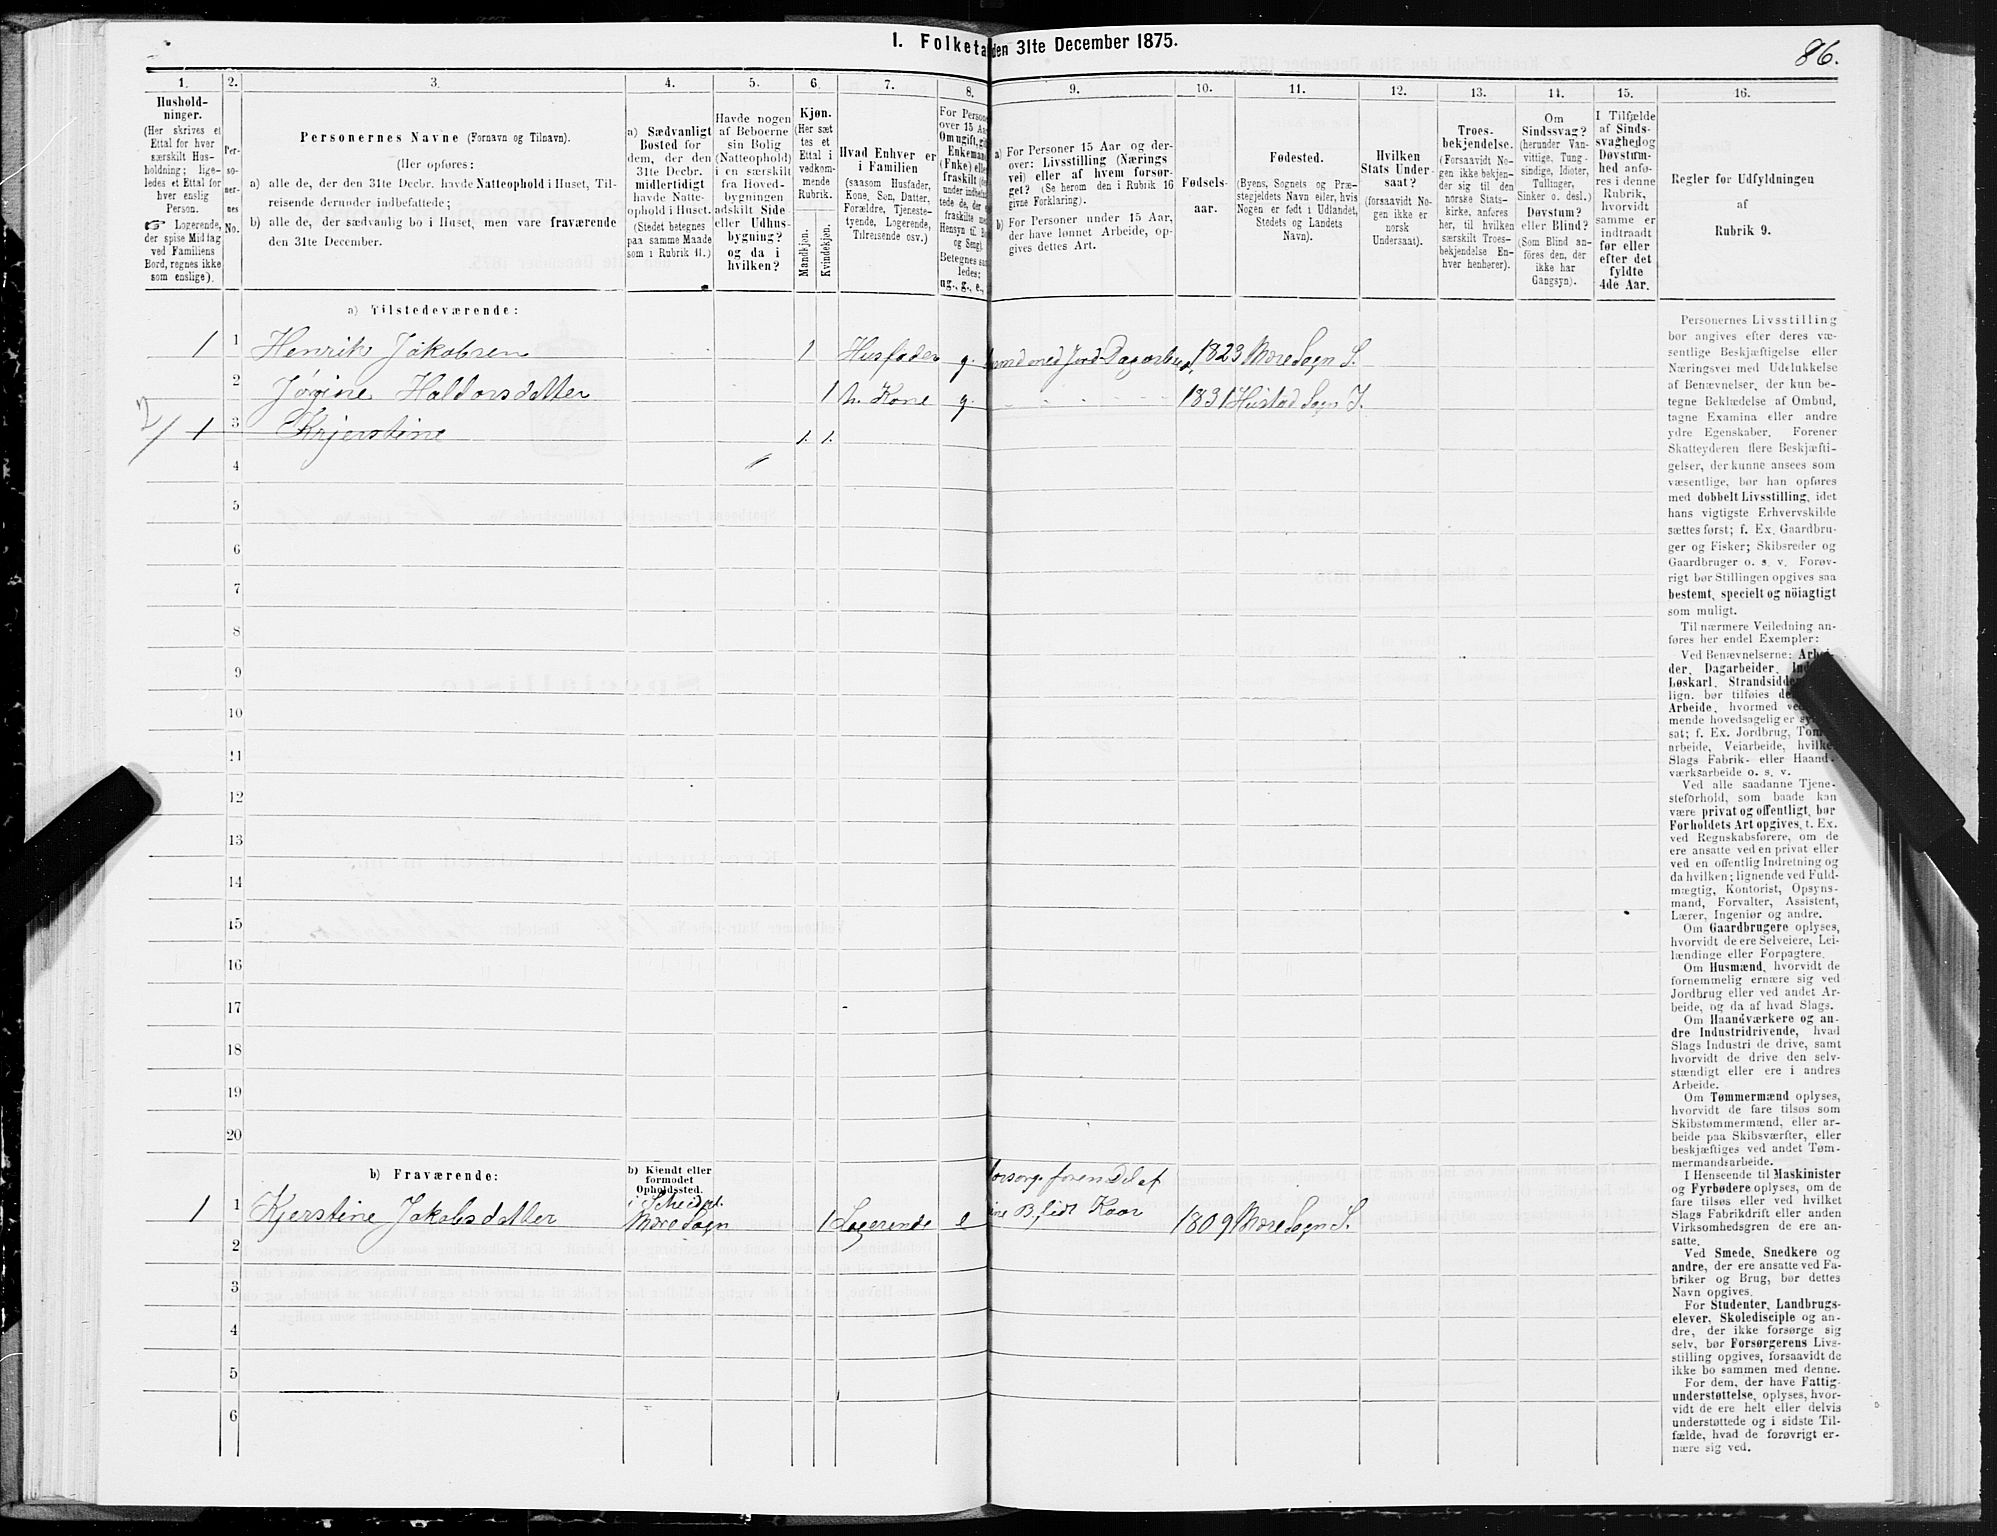 I. Folketa den 31te December 1875.
86.
1.
2.
3.
4.
5.
6.
7.
8.
9.
10.
11.
12.
13.
14.
15.
16.
Hushold-
ninger.
(Her skrives et
Ettal for hver
særskilt Hus-
holdning; lige-
ledes et Ettal for
hver enslig
Person.
☞ Logerende,
der spise Middag
ved Familiens
Bord, regnes ikke
som enslige).
Per-
so-
ner-
nes
No.
Personernes Navne (Fornavn og Tilnavn).
(Her opføres:
a) alle de, der den 31te Decbr. havde Natteophold i Huset, Til-
reisende derunder indbefattede;
b) alle de, der sædvanlig bo i Huset, men vare fraværende
den 31te December.
a) Sædvanligt
Bosted for
dem, der den
31te Decbr.
midlertidigt
havde Natte-
ophold i Huset.
(Stedet betegnes
paa samme Maade
som i Rubrik 11.)
Havde nogen
af Beboerne
sin Bolig
(Natteophold)
i en særskilt
fra Hoved-
bygningen
adskilt Side-
eller Udhus-
bygning?
og da i
hvilken?
Kjøn.
(Her sæt-
tes et
Ettal i
vedkom-
mende
Rubrik.
Mandkjøn.
Kvindekjøn.
Hvad Enhver er
i Familien
(saasom Husfader,
Kone, Søn, Datter,
Forældre, Tjeneste-
tyende, Logerende,
Tilreisende osv.)
For Person
over 15 Aar
Om ugift, gift
Enkemand
(Enke) eller
fraskilt (der-
under indbefat-
tede de, der ere
fraskilte med
Hensyn til Bord
og Seng).
Betegnes saa-
ledes:
ug., g., e.,
a) For Personer 15 Aar og der-
over: Livsstilling (Nærings-
vei) eller af hvem forsør-
get? (Se herom den i Rubrik 16
givne Forklaring).
b) For Personer under 15 Aar,
der have lønnet Arbeide, op-
gives dettes Art.
Fødsels-
aar.
Fødested.
(Byens, Sognets og Præ-
stegjeldets Navn eller, hvis
Nogen er født i Udlandet,
Stedets og Landets
Navn).
Hvilken
Stats Under-
saat?
(forsaavidt No-
gen ikke er
norsk
Undersaat).
Troes-
bekjendelse.
(Forsaavidt No-
gen ikke bekjen-
der sig til den
norske Stats-
kirke, anføres
her, til hvilken
særskilt Troes-
bekjendelse En-
hver henhører).
Om
Sindssvag?
(herunder Van-
vittige, Tung-
sindige, Idioter,
Tullinger,
Sinker o. desl.)
Døvstum?
eller Blind?
(Som Blind an-
føres den, der
ikke har
Gangsyn).
I Tilfælde
af Sinds-
svaghed og
Døvstum-
hed anfø-
res i denne
Rubrik,
hvorvidt
samme er
indtraadt
før eller
efter det
fyldte
4de Aar.
Regler for Udfyldningen
af
Rubrik 9.
a) Tilstedeværende:
1 1 Henrik Jakobsen 1 Husfader g. mand med Jord Dagarbeid. 1823 Moresogn S.
2 Jørgine Haldorsdatter 1 h. Kone g. 1831 Hustad Sogn I.
2/ 1 3 Kjerstine 1. 1.
4
5
6
7
8
9
10
11
12
13
14
15
16
17
18
19
20
b) Fraværende:
b) Kjendt eller
formodet
Opholdssted.
1 1 Kjerstine Jakobsdatter Moresogn 1 Logerende e 1809 Moresogn S.
2
3
4
5
6
Personernes Livsstilling
bør angives efter deres væ-
sentlige Beskjæftigelse eller
Næringsvei med Udelukkelse
af Benævnelser, der kun be-
tegne Beklædelse af Ombud,
tagne Examina eller andre
ydre Egenskaber. Forener
Skatteyderen flere Beskjæfti-
gelser, der kunne ansees som
væsentlige, bør han opføres
med dobbelt Livsstilling, idet
hans vigtigste Erhvervskilde
sættes først; f. Ex. Gaardbru-
ger og Fisker; Skibsreder og
Gaardbruger o. s. v. Forøv-
rigt bør Stillingen opgives saa
bestemt, specielt og nöiagtigt
som muligt.
Til nærmere Veiledning an-
føres her endel Exempler:
Ved Benævnelserne: Arbei-
der, Dagarbeider, Ind
Løskarl, Strandsidder
lign. bør tilføies de
Arbeide, hvormed ved
mende hovedsagelig er sys
sat; f. Ex. Jordbrug, Tom
arbeide, Veiarbeide, hvilket
Slags Fabrik- eller Haand-
værksarbeide o. s. v.
Ved alle saadanne Tjene-
steforhold, som baade kan
være privat og offentligt, bør
Forholdets Art opgives, t. Ex.
ved Regnskabsførere, om de
ere ansatte ved en privat eller
ved en offentlig Indretning og
da hvilken; lignende ved Fuld-
mægtig, Kontorist, Opsyns-
mand, Forvalter, Assistent,
Lærer, Ingeniør og andre.
Om Gaardbrugere oplyses,
hvorvidt de ere Selveiere, Lei-
lændinge eller Forpagtere.
Om Husmænd, hvorvidt de
fornemmelig ernære sig ved
Jordbrug eller ved andet Ar-
beide, og da af hvad Slags.
Om Haandværkere og an-
dre Industridrivende, hvad
Slags Industri de drive, samt
hvorvidt de drive den selv-
stændigt eller ere i andres
Arbeide.
Om Tømmermænd oplyses,
hvorvidt de fare tilsøs som
Skibstømmermænd, eller ar-
beide paa Skibsværfter, eller
beskjæftiges ved andet Tøm-
mermandsarbeide.
I Henseende til Maskinister
og Fyrbødere oplyses, om de
fare tilsøs eller ved hvilket
Slags Fabrikdrift eller anden
Virksomhedsgren de ere an-
satte.
Ved Smede, Snedkere og
andre, der ere ansatte ved Fa-
briker og Brug, bør dettes
Navn opgives.
For Studenter, Landbrugs-
elever, Skoledisciple og an-
dre, der ikke forsørge sig
selv, bør Forsørgerens Livs-
stilling opgives, forsaavidt de
ikke bo sammen med denne.
For dem, der have Fattig-
understøttelse, oplyses, hvor-
vidt de ere helt eller delvis
understøttede og i sidste Til-
fælde, hvad de forøvrigt er-
nære sig ved.